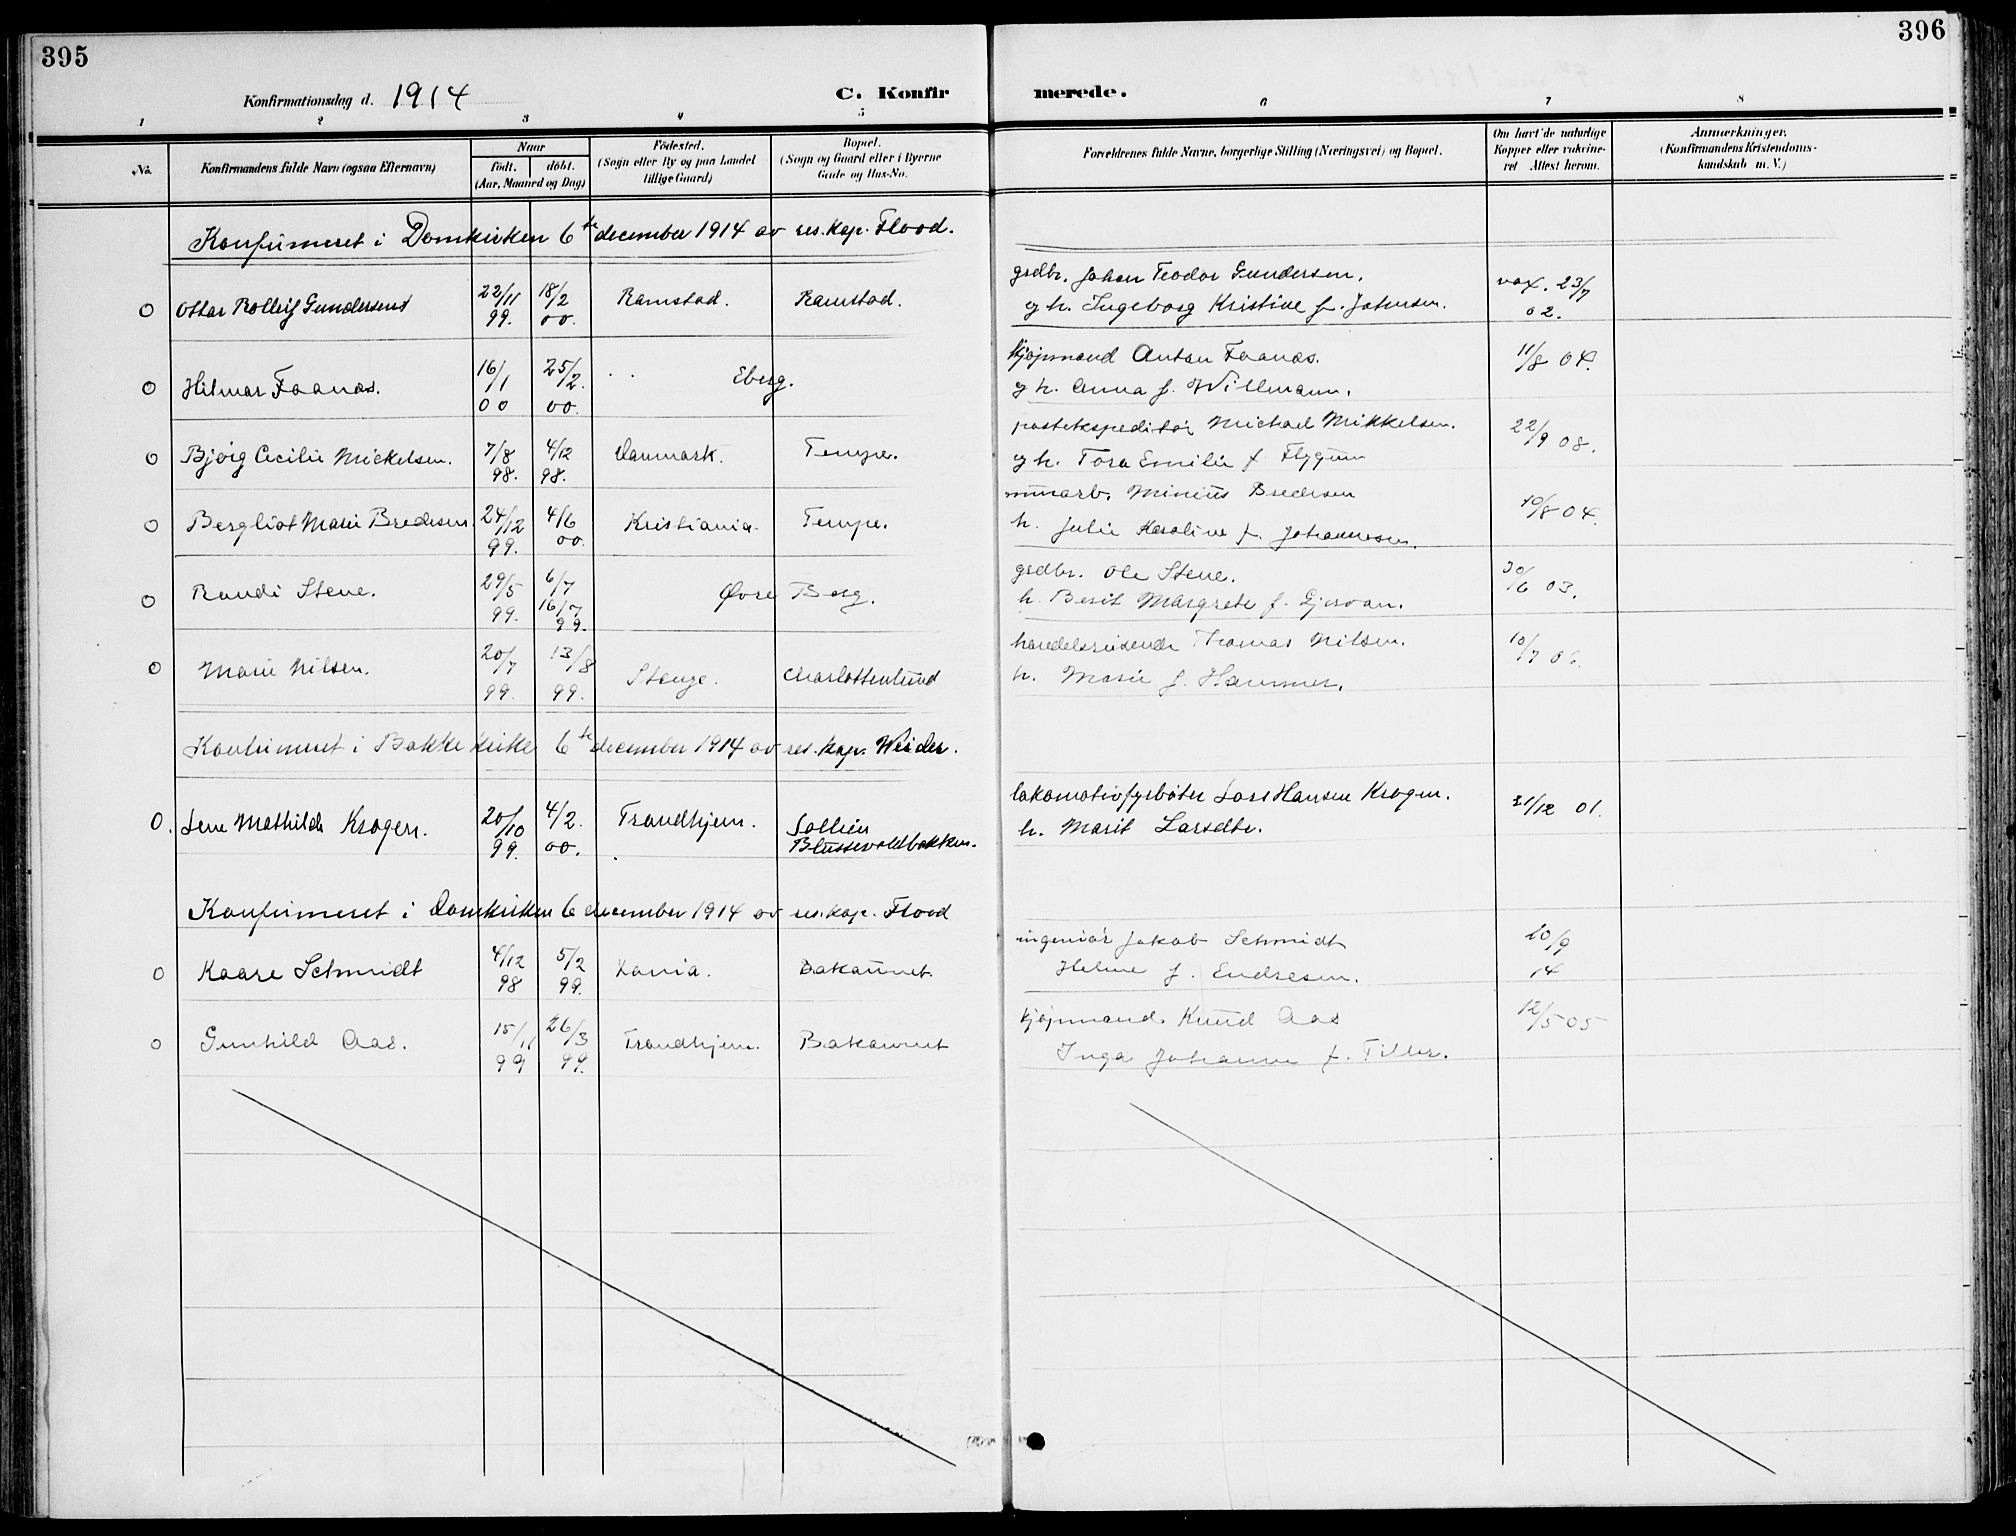 395
396
Konfirmationsdag d. 1914
C. Konfirmerede.
1 2 3 4 5 6 7 8
No.
Konfirmandens fulde Navn (ogsaa Efternavn)
Naar
født. døbt.
(Aar, Maaned og Dag)
Fødested.
(Sogn eller By og paa Landet
tillige Gaard)
Bopæl.
(Sogn og Gaard eller i Byerne
Gade og Hus-No.
Forældrenes fulde Navne, borgerlige Stilling (Næringsvei) og Bopæl.
Om havt de naturlige
Kopper eller vakcine-
ret Attest herom.
Anmærkninger.
(Konfirmandens Kristendoms-
kundskab m. V.)
Konfirmeret i Domkirken 6te december 1914 av res. kap. Flood.
O Ottar Rolleif Gundersen 22/11 99. 18/2 00. Ramstad. Ramstad. grdbr. Johan Teodor Gundersen. vax. 23/7
og h. Ingeborg Kristine f. Johnsen. 02.
O Hilmar Faanæs. 16/1 00 25/2 00. Eberg. kjøpmand Anton Faanæs. 11/8 04.
og h. Anna f. Willmann.
O Bjørg Cecilie Mickelsen. 7/8 98. 4/12 98. Danmark. Tempe. postekspeditør Michael Mikkelsen. 22/9 08.
og h. Tora Emilie f. Flygum
O Bergliot Marie Bredesen 24/12 99. 4/6 00. Kristiania. Tempe. murarb. Minius Bredesen 10/8 04.
h. Julie Karoline f. Johannesen.
O Randi Stene. 29/5 99. 6/7 16/7 99. Øvre Berg. grdbr. Ole Stene. 30/6 03.
h. Berit Margrete f. Gjervan.
O Marie Nilsen. 20/7 99. 13/8 99. Stange. Charlottenlund handelsreisende Thomas Nilsen. 10/7
h. Marie f. Hammer.
Konfirmeret i Bakke kirke 6te december 1914 av res. kap. Weider.
O. Lene Mathilde Krogen. 20/10 99. 4/2. 00. Trondhjem. Solliein
Blussevoldbakken.
lokomotivfyrbøter Lars Hansen Krogen. 31/12 01.
h. Marit Larsdtr.
Konfirmeret i Domkirken 6 december 1914 av res. kap. Flood
O Kaare Schmidt 4/12 98 5/2 99. Xania. Bakaunet. ingeniør Jakob Schmidt 20/9
Helene f. Endresen. 14
O Gunhild Aas. 15/11 99 26/3 99. Trondhjem. Bakaunet kjøpmand. Knud Aas 12/5 05
Inga Johanne f. Tiller.